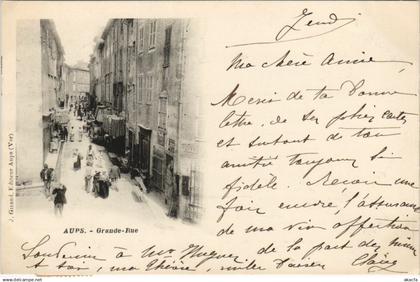 Jeudi
Ma chère Amie
Merci de ta bonne
lettre, de ses jolies cartes
et surtout de ton
amitié toujours si
fidèle. Reçois une
fois encore, l'assurance
de ma vive affection
de la part des miens
Souvenir à Mr Hugues
et toi, ma chérie, mille baisers
Claire
AUPS. - Grande-Rue
J. Girard, Editeur Aups (Var)
www.akpool.com